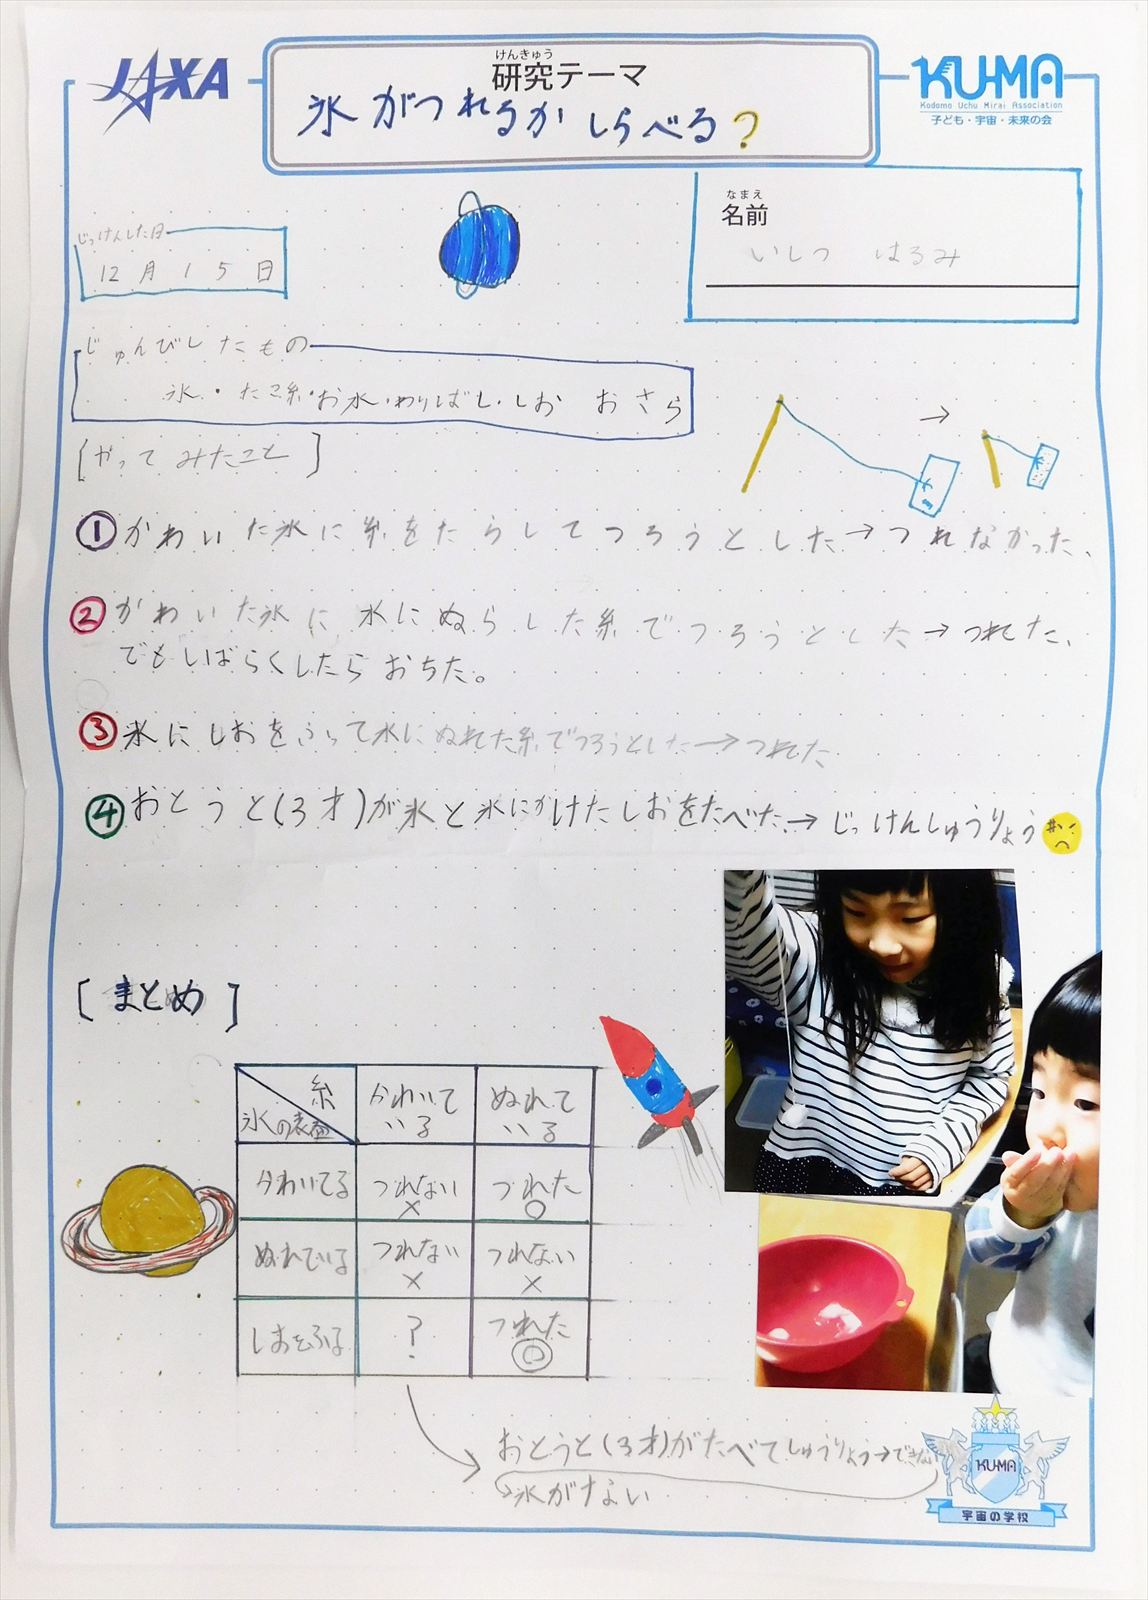 JAXA
けんきゅう
研究テーマ
氷がつれるかしらべる?
KU-MA
Kodomo Uchu Mirai Association
子ども・宇宙・未来の会
なまえ
名前
いしつ はるみ
じっけんした日
12月15日
じゅんびしたもの
氷・たこ糸・お水・わりばし・しお おさら
[やってみたこと]
①かわいた氷に糸をたらしてつろうとした→つれなかった、
②かわいた氷に水にぬらした糸でつろうとした→つれた、
でもしばらくしたらおちた。
③氷にしおをふって水にぬれた糸でつろうとした→つれた
④おとうと(3才)が氷と氷にかけたしおをたべた→じっけんしゅうりょう
[まとめ]
糸 かわいている ぬれている
氷の表面
かわいてる つれない× つれた○
ぬれている つれない× つれない×
しおをふる ? つれた◎
おとうと(3才)がたべてしゅうりょう→できない
氷がない
KU-MA
宇宙の学校